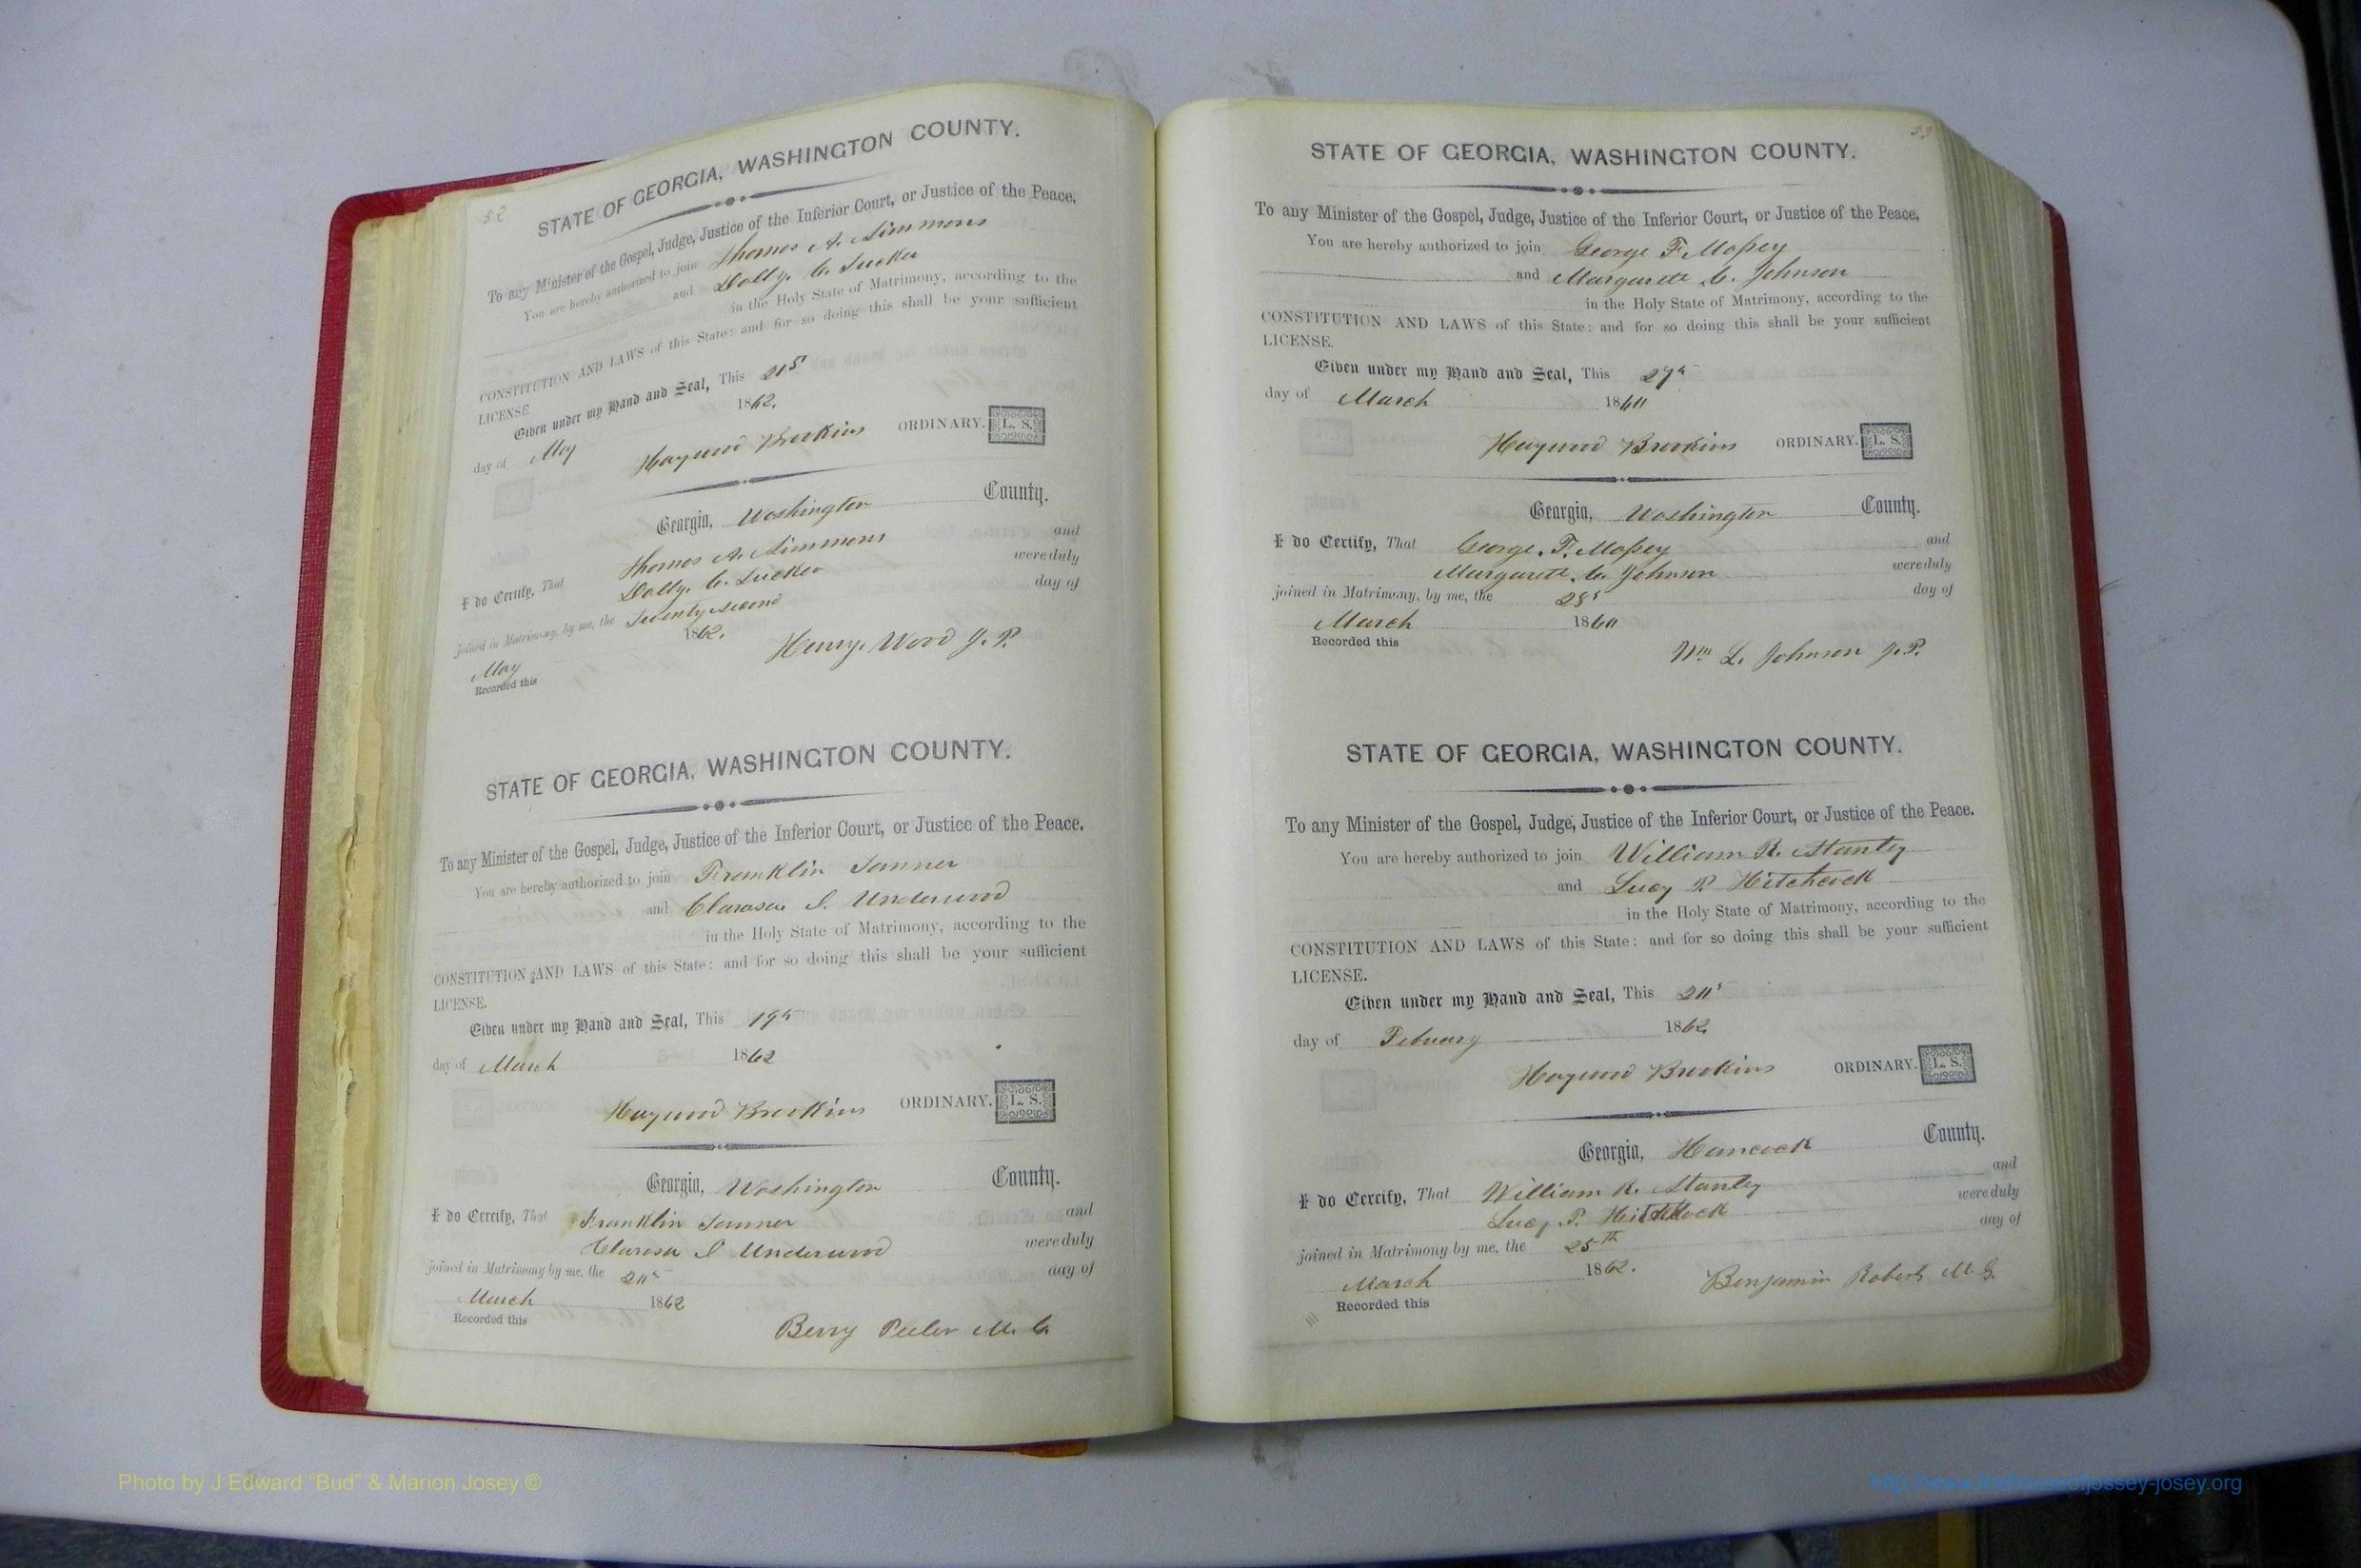 52
STATE OF GEORGIA, WASHINGTON COUNTY.
To any Minister of the Gospel, Judge, Justice of the Inferior Court, or Justice of the Peace.
You are hereby authorized to join Thomas A. Simmons
and Dolly. C. Tucker
in the Holy State of Matrimony, according to the
CONSTITUTION AND LAWS of this State: and for so doing this shall be your sufficient
LICENSE
Given under my Hand and Seal, This 21s
day of May 1862.
Haywood Brookins ORDINARY. L. S.
Georgia, Washington County.
I do Certify, That Thomas A. Simmons and
Dolly. C. Tucker were duly
joined in Matrimony, by me, the Twenty second day of
May 1862.
Recorded this
Henry. Wood J. P.
STATE OF GEORGIA, WASHINGTON COUNTY.
To any Minister of the Gospel, Judge, Justice of the Inferior Court, or Justice of the Peace.
You are hereby authorized to join Franklin Tanner
and Clarosa I. Underwood
in the Holy State of Matrimony, according to the
CONSTITUTION AND LAWS of this State: and for so doing this shall be your sufficient
LICENSE.
Given under my Hand and Seal, This 19th
day of March 1862
Haywood Brookins ORDINARY. L. S.
Georgia, Washington County.
I do Certify, That Franklin Tanner and
Clarosa I Underwood were duly
joined in Matrimony by me, the day of
March 1862
Recorded this
Berry Peeler M. G.
53
STATE OF GEORGIA, WASHINGTON COUNTY.
To any Minister of the Gospel, Judge, Justice of the Inferior Court, or Justice of the Peace.
You are hereby authorized to join George F. Massey
and Margarett C. Johnson
in the Holy State of Matrimony, according to the
CONSTITUTION AND LAWS of this State: and for so doing this shall be your sufficient
LICENSE.
Given under my Hand and Seal, This 27th
day of March 1860
Haywood Brookins ORDINARY. L. S.
Georgia, Washington County.
I do Certify, That George. F. Massey and
Margarett. C. Johnson were duly
joined in Matrimony, by me, the 28 day of
March 1860
Recorded this
Wm L. Johnson J. P.
STATE OF GEORGIA, WASHINGTON COUNTY.
To any Minister of the Gospel, Judge, Justice of the Inferior Court, or Justice of the Peace.
You are hereby authorized to join William R. Stanley
and Lucy P. Hitchcock
in the Holy State of Matrimony, according to the
CONSTITUTION AND LAWS of this State: and for so doing this shall be your sufficient
LICENSE.
Given under my Hand and Seal, This
day of Febuary 1862
Haywood Brookins ORDINARY. L. S.
Georgia, Hancock County.
I do Certify, That William R. Stanley and
Lucy. P. Hitchcock were duly
joined in Matrimony by me, the 25th day of
March 1862.
Recorded this
Benjamin Roberts M. G.
Photo by J Edward “Bud” & Marion Josey ©